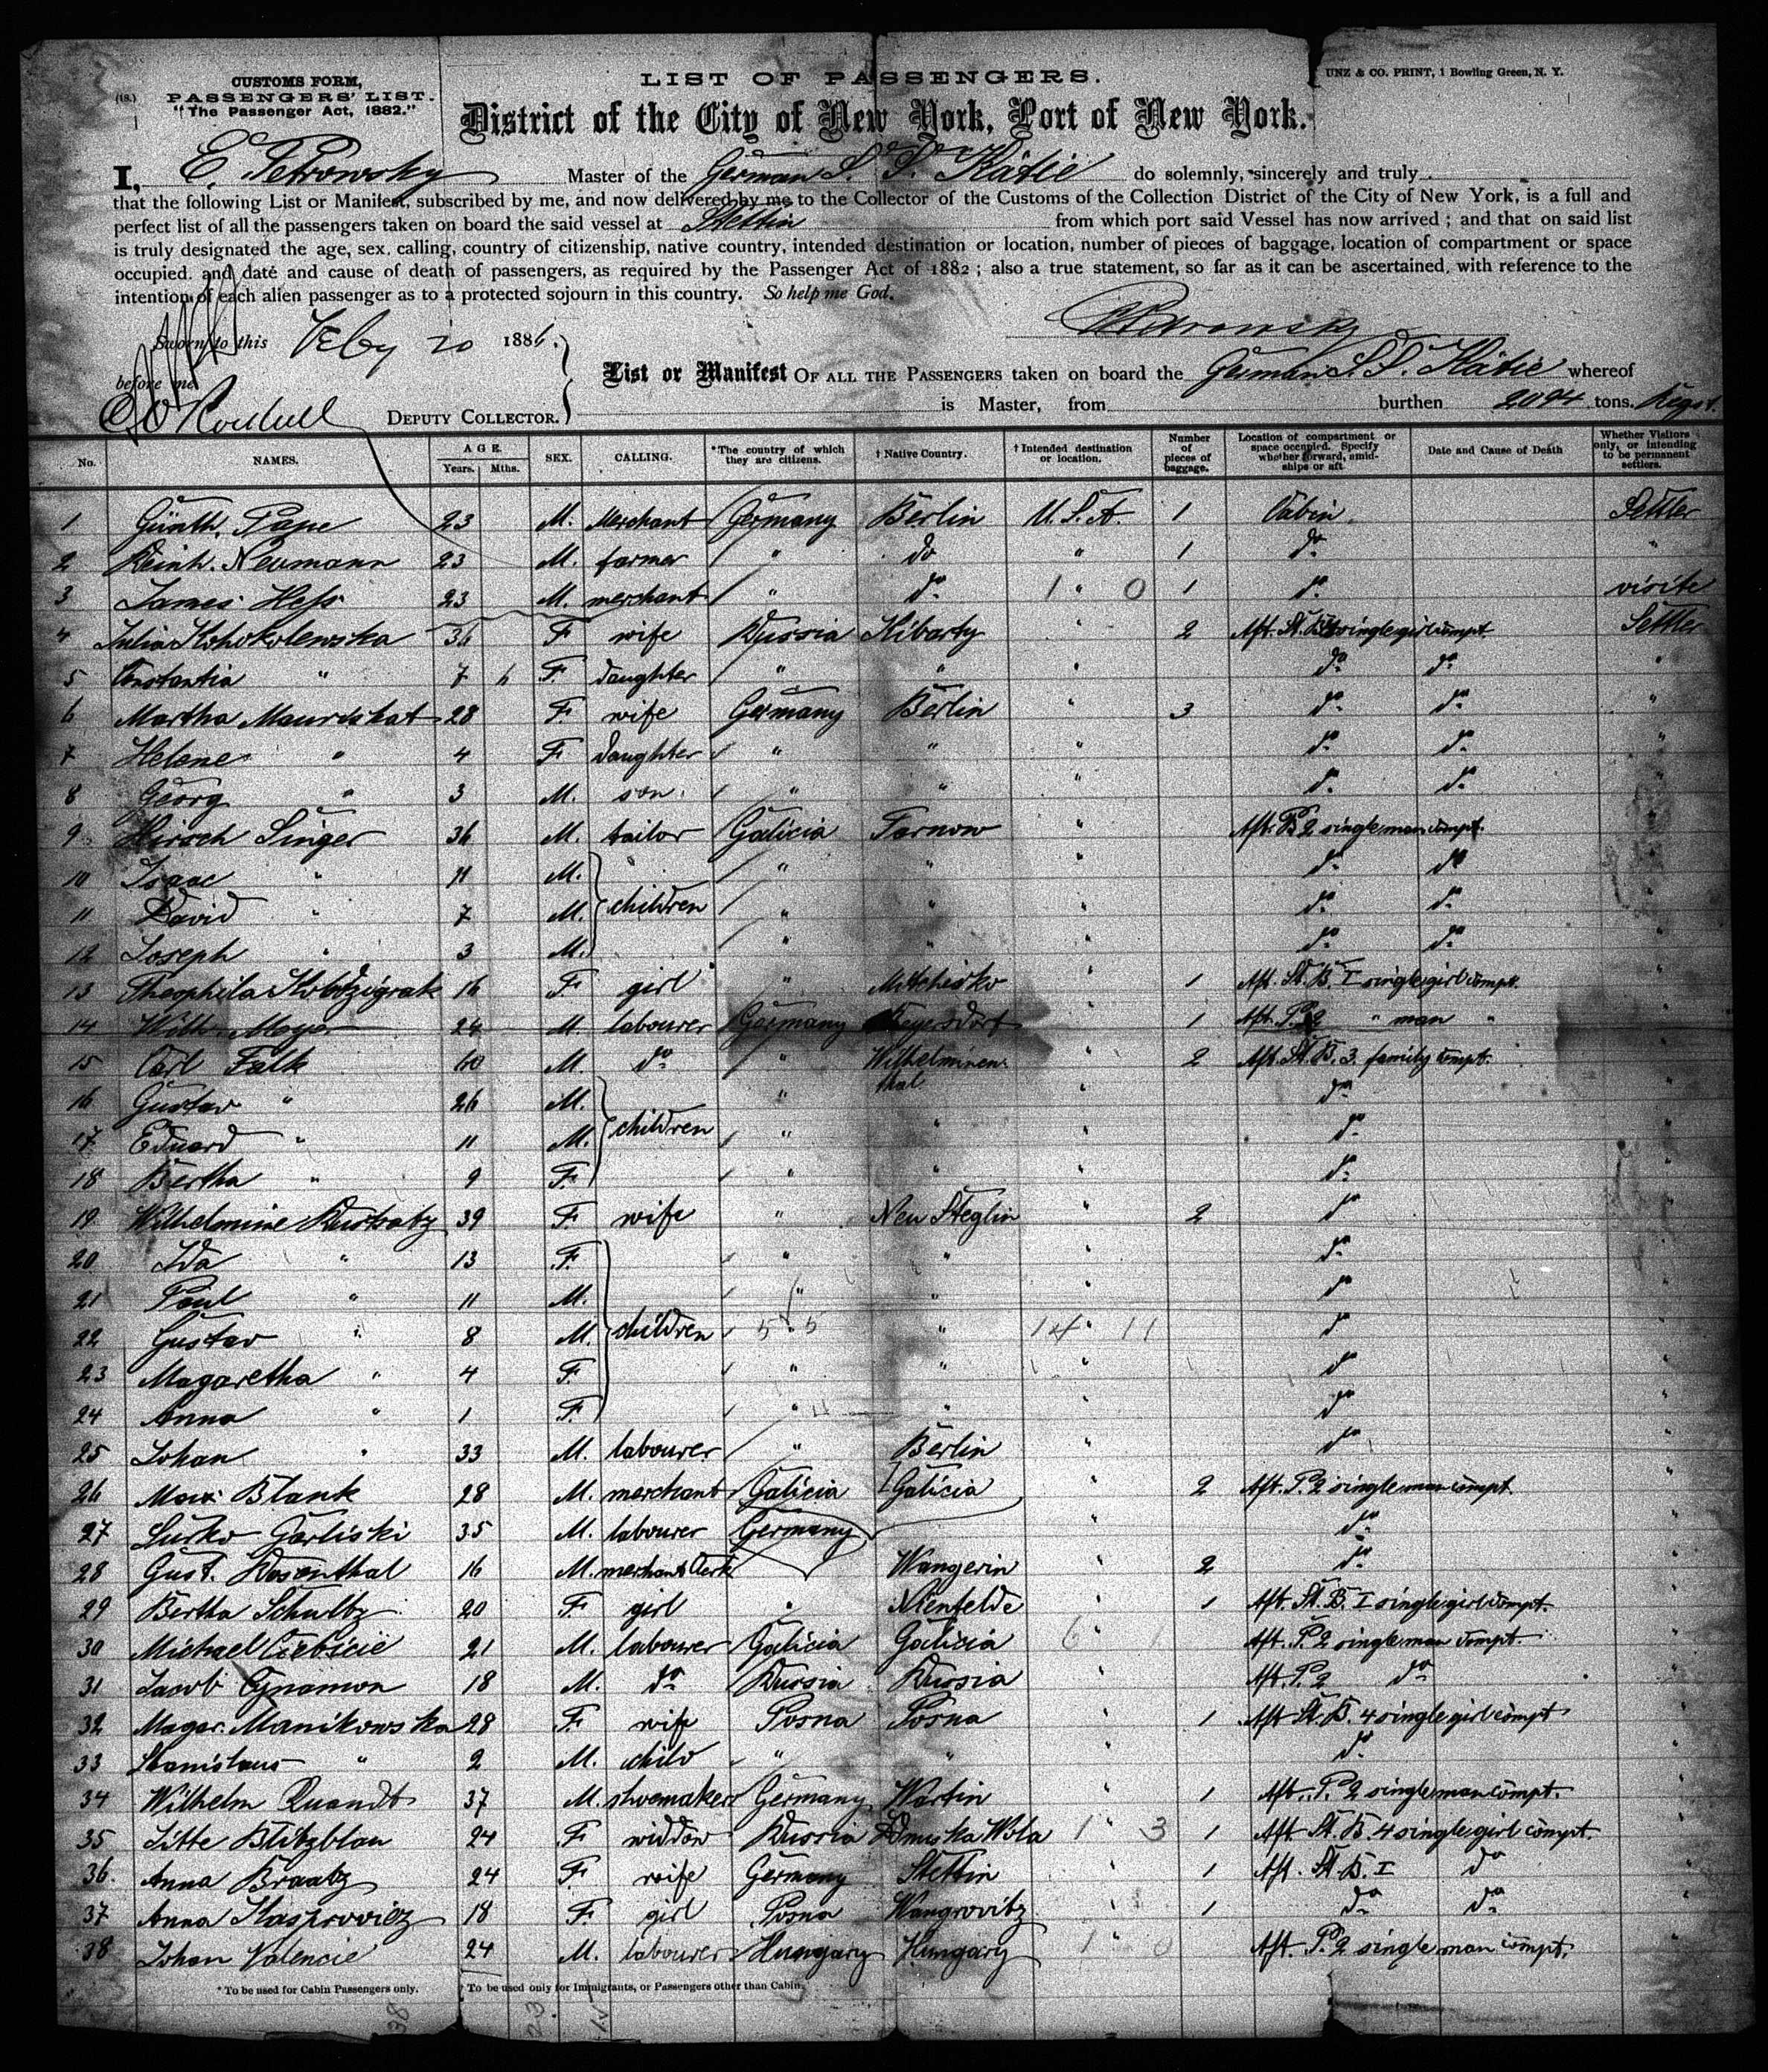 CUSTOMS FORM,
(18.) PASSENGERS' LIST.
"The Passenger Act, 1882."
LIST OF PASSENGERS.
UNZ & CO. PRINT, 1 Bowling Green, N. Y.
District of the City of New York, Port of New York.
I, E. Petrowsky Master of the German S. S. Kätie do solemnly, sincerely and truly
that the following List or Manifest, subscribed by me, and now delivered by me to the Collector of the Customs of the Collection District of the City of New York, is a full and
perfect list of all the passengers taken on board the said vessel at Stettin from which port said Vessel has now arrived; and that on said list
is truly designated the age, sex, calling, country of citizenship, native country, intended destination or location, number of pieces of baggage, location of compartment or space
occupied, and date and cause of death of passengers, as required by the Passenger Act of 1882; also a true statement, so far as it can be ascertained, with reference to the
intention of each alien passenger as to a protected sojourn in this country. So help me God.
Petrowsky
Sworn to this Feby 20 1886.
before me
DEPUTY COLLECTOR.
List or Manifest OF ALL THE PASSENGERS taken on board the German S. S. Kätie whereof
is Master, from burthen 2094 tons. Regst.
No. NAMES. AGE. Years. Mths. SEX. CALLING. *The country of which they are citizens. † Native Country. † Intended destination or location. Number of pieces of baggage. Location of compartment or space occupied. Specify whether forward, amidships or aft Date and Cause of Death Whether Visitors only, or intending to be permanent settlers.
1 Günth. Pape 23 M. Merchant Germany Berlin U.S.A. 1 Cabin Settler
2 Reinh. Neumann 23 M. farmer " do " 1 do "
3 James Hess 23 M. merchant " do 1 " 0 1 do visite
4 Julia 36 F wife Russia Kibarty " 2 Aft. St. B. single girl compt Settler
5 Constantia " 7 F. daughter " " " do do "
6 Martha Maurishat 28 F wife Germany Berlin 3 do do "
7 Helene " 4 F daughter " " " do do "
8 Georg " 3 M. son " " " do do "
9 Hirsch Singer 36 M. tailor Galicia Tarnow " Aft. P. 2 single man compt.
10 Isaac " 11 M. " " " do do
11 David " 7 M. children " " " do do "
12 Joseph " 3 M. " " " do do "
13 Theophila 16 F. girl " " 1 Aft. St. B. I single girl compt. "
14 Wilh. Meyer 24 M. labourer Germany 1 Aft. P. 2 " man "
15 Carl Falk 60 M. do " Wilhelminenthal 2 Aft. St. B. 3 family compt.
16 Gustav " 26 M. " " do "
17 Eduard " 11 M. children " " " do "
18 Bertha " 9 F. " " " do "
19 Wilhelmine 39 F wife " Neu Steglin " 2 do "
20 Ida " 13 F. " " " do "
21 Paul " 11 M. " " " do "
22 Gustav " 8 M. children 5 " 5 " 14 " 11 do "
23 Magaretha " 4 F. " " " do "
24 Anna " 1 F. " " " do "
25 Johan " 33 M. labourer " Berlin " do "
26 Max Blank 28 M. merchant Galicia Galicia " 2 Aft. P. 2 single man compt. "
27 Garliski 35 M. labourer Germany " do "
28 Gust. Rosenthal 16 M. merchant Clerk Wangerin " 2 do "
29 Bertha Schultz 20 F girl " Nienfelde " 1 Aft. St. B. I single girl compt. "
30 Michael 21 M. labourer Galicia Galicia 6 " 1 Aft. P. 2 single man compt. "
31 Jacob 18 M. do Russia Russia " Aft. P. 2 do "
32 Magar. Manikowska 28 F. wife Posna Posna " 1 Aft St. B. 4 single girl compt "
33 Stanislaus " 2 M. child " " " do "
34 Wilhelm Quandt 37 M. shoemaker Germany Wartin " 1 Aft. P. 2 single man compt. "
35 Litte Blitzblau 24 F widdow Russia Wola 1 " 3 1 Aft St. B. 4 single girl compt. "
36. Anna Braatz 24 F. wife Germany Stettin " 1 Aft. St. B. I do "
37 Anna Kasprovicz 18 F. girl Posna Wangrovitz " 1 do do "
38 Johan Valencie 24 M. labourer Hungary Hungary 1 " 0 Aft. P. 2 single man compt.
* To be used for Cabin Passengers only.
† To be used only for Immigrants, or Passengers other than Cabin.
38
23
15